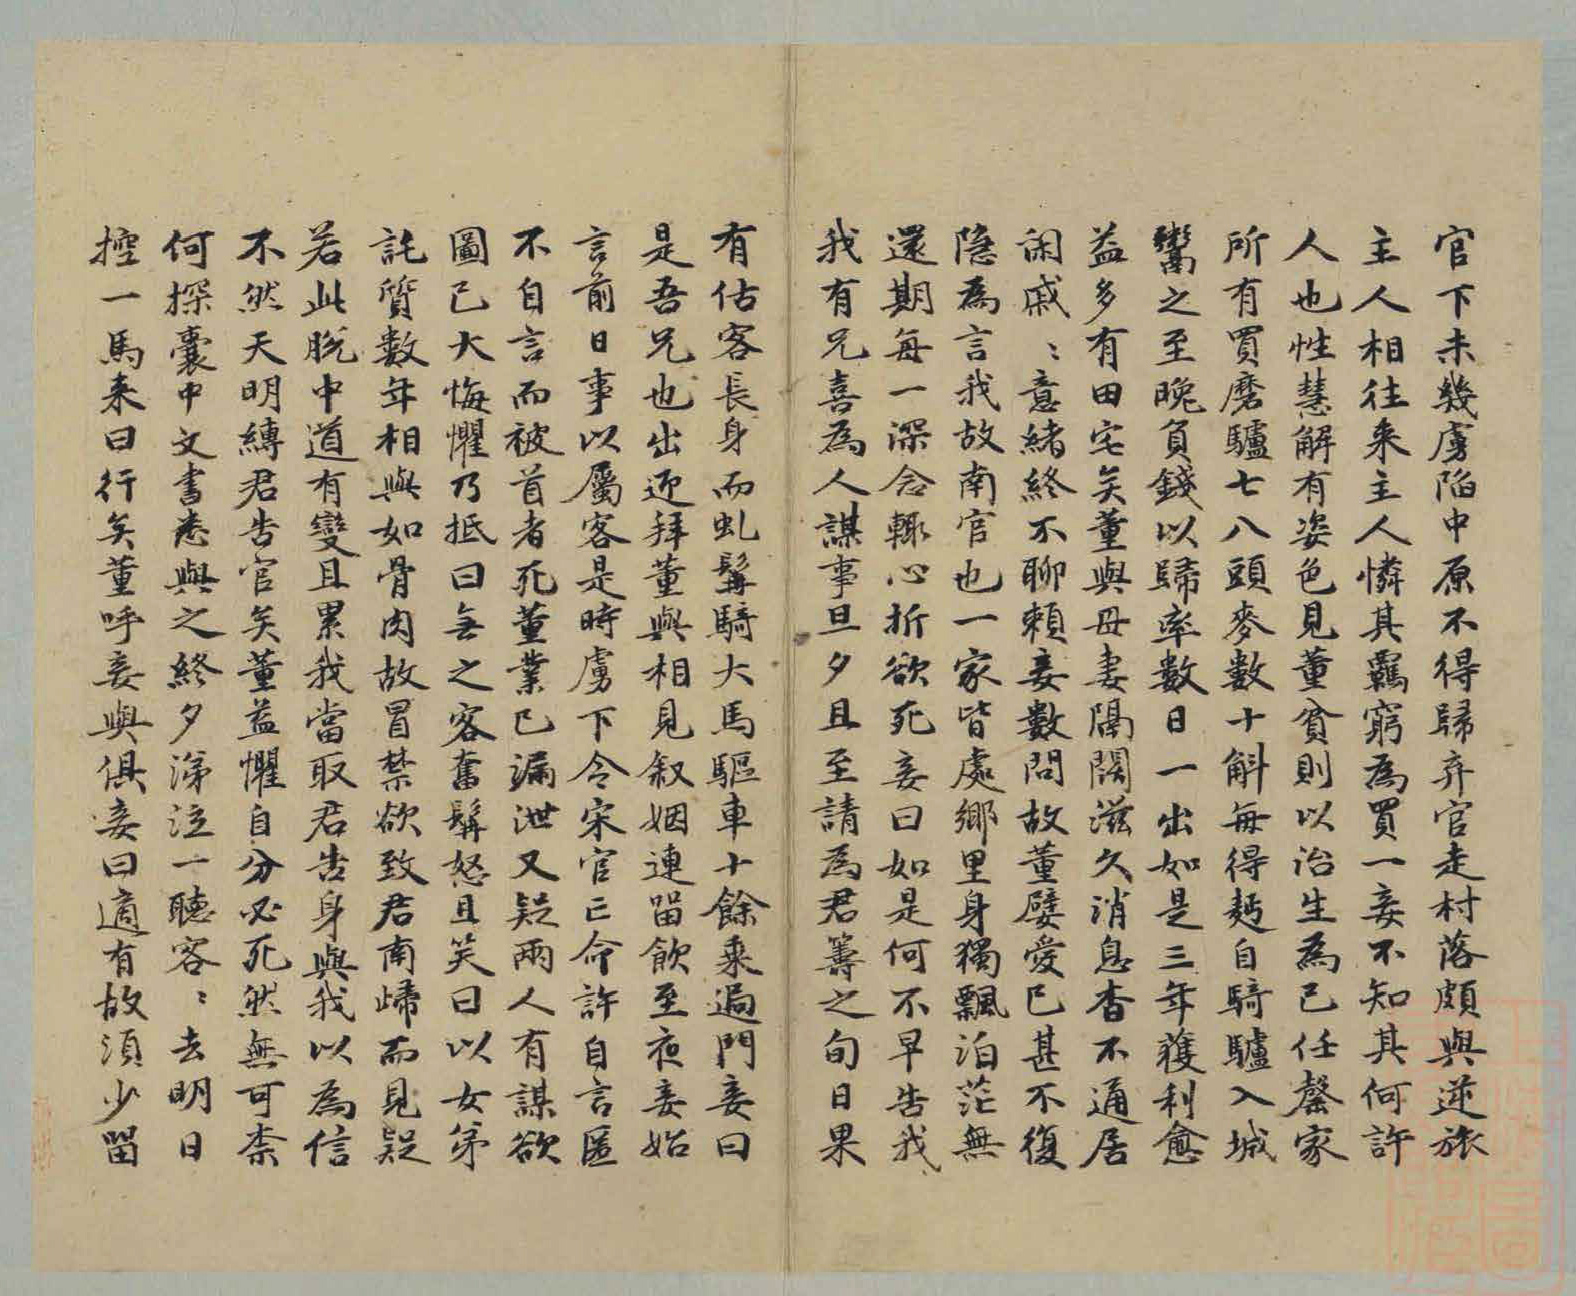 官下未幾虜陷中原不得歸弃官走村落頗與逆旅
主人相往来主人憐其羈窮為買一妾不知其何許
人也性慧解有姿色見董貧則以治生為己任罄家
所有買磨驢七八頭麥數十斛每得麪自騎驢入城
鬻之至晚負錢以歸率數日一出如是三年獲利愈
益多有田宅矣董與母妻隔闊滋久消息杳不通居
閑戚〻意緒終不聊賴妾數問故董嬖愛已甚不復
隱為言我故南官也一家皆處鄉里身獨飄泊茫無
還期每一深念輒心折欲死妾曰如是何不早告我
我有兄喜為人謀事旦夕且至請為君籌之旬日果
有估客長身而虬髯騎大馬驅車十餘乘過門妾曰
是吾兄也出迎拜董與相見叙姻連留飲至夜妾始
言前日事以屬客是時虜下令宋官亡命許自言匿
不自言而被首者死董業已漏泄又疑兩人有謀欲
圖已大悔懼乃抵曰無之客奮髯怒且笑曰以女弟
託質數年相與如骨肉故冒禁欲致君南歸而見疑
若此脫中道有變且累我當取君告身與我以為信
不然天明縛君告官矣董益懼自分必死然無可柰
何探囊中文書悉與之終夕涕泣一聽客〻去明日
控一馬来曰行矣董呼妾與俱妾曰適有故須少留